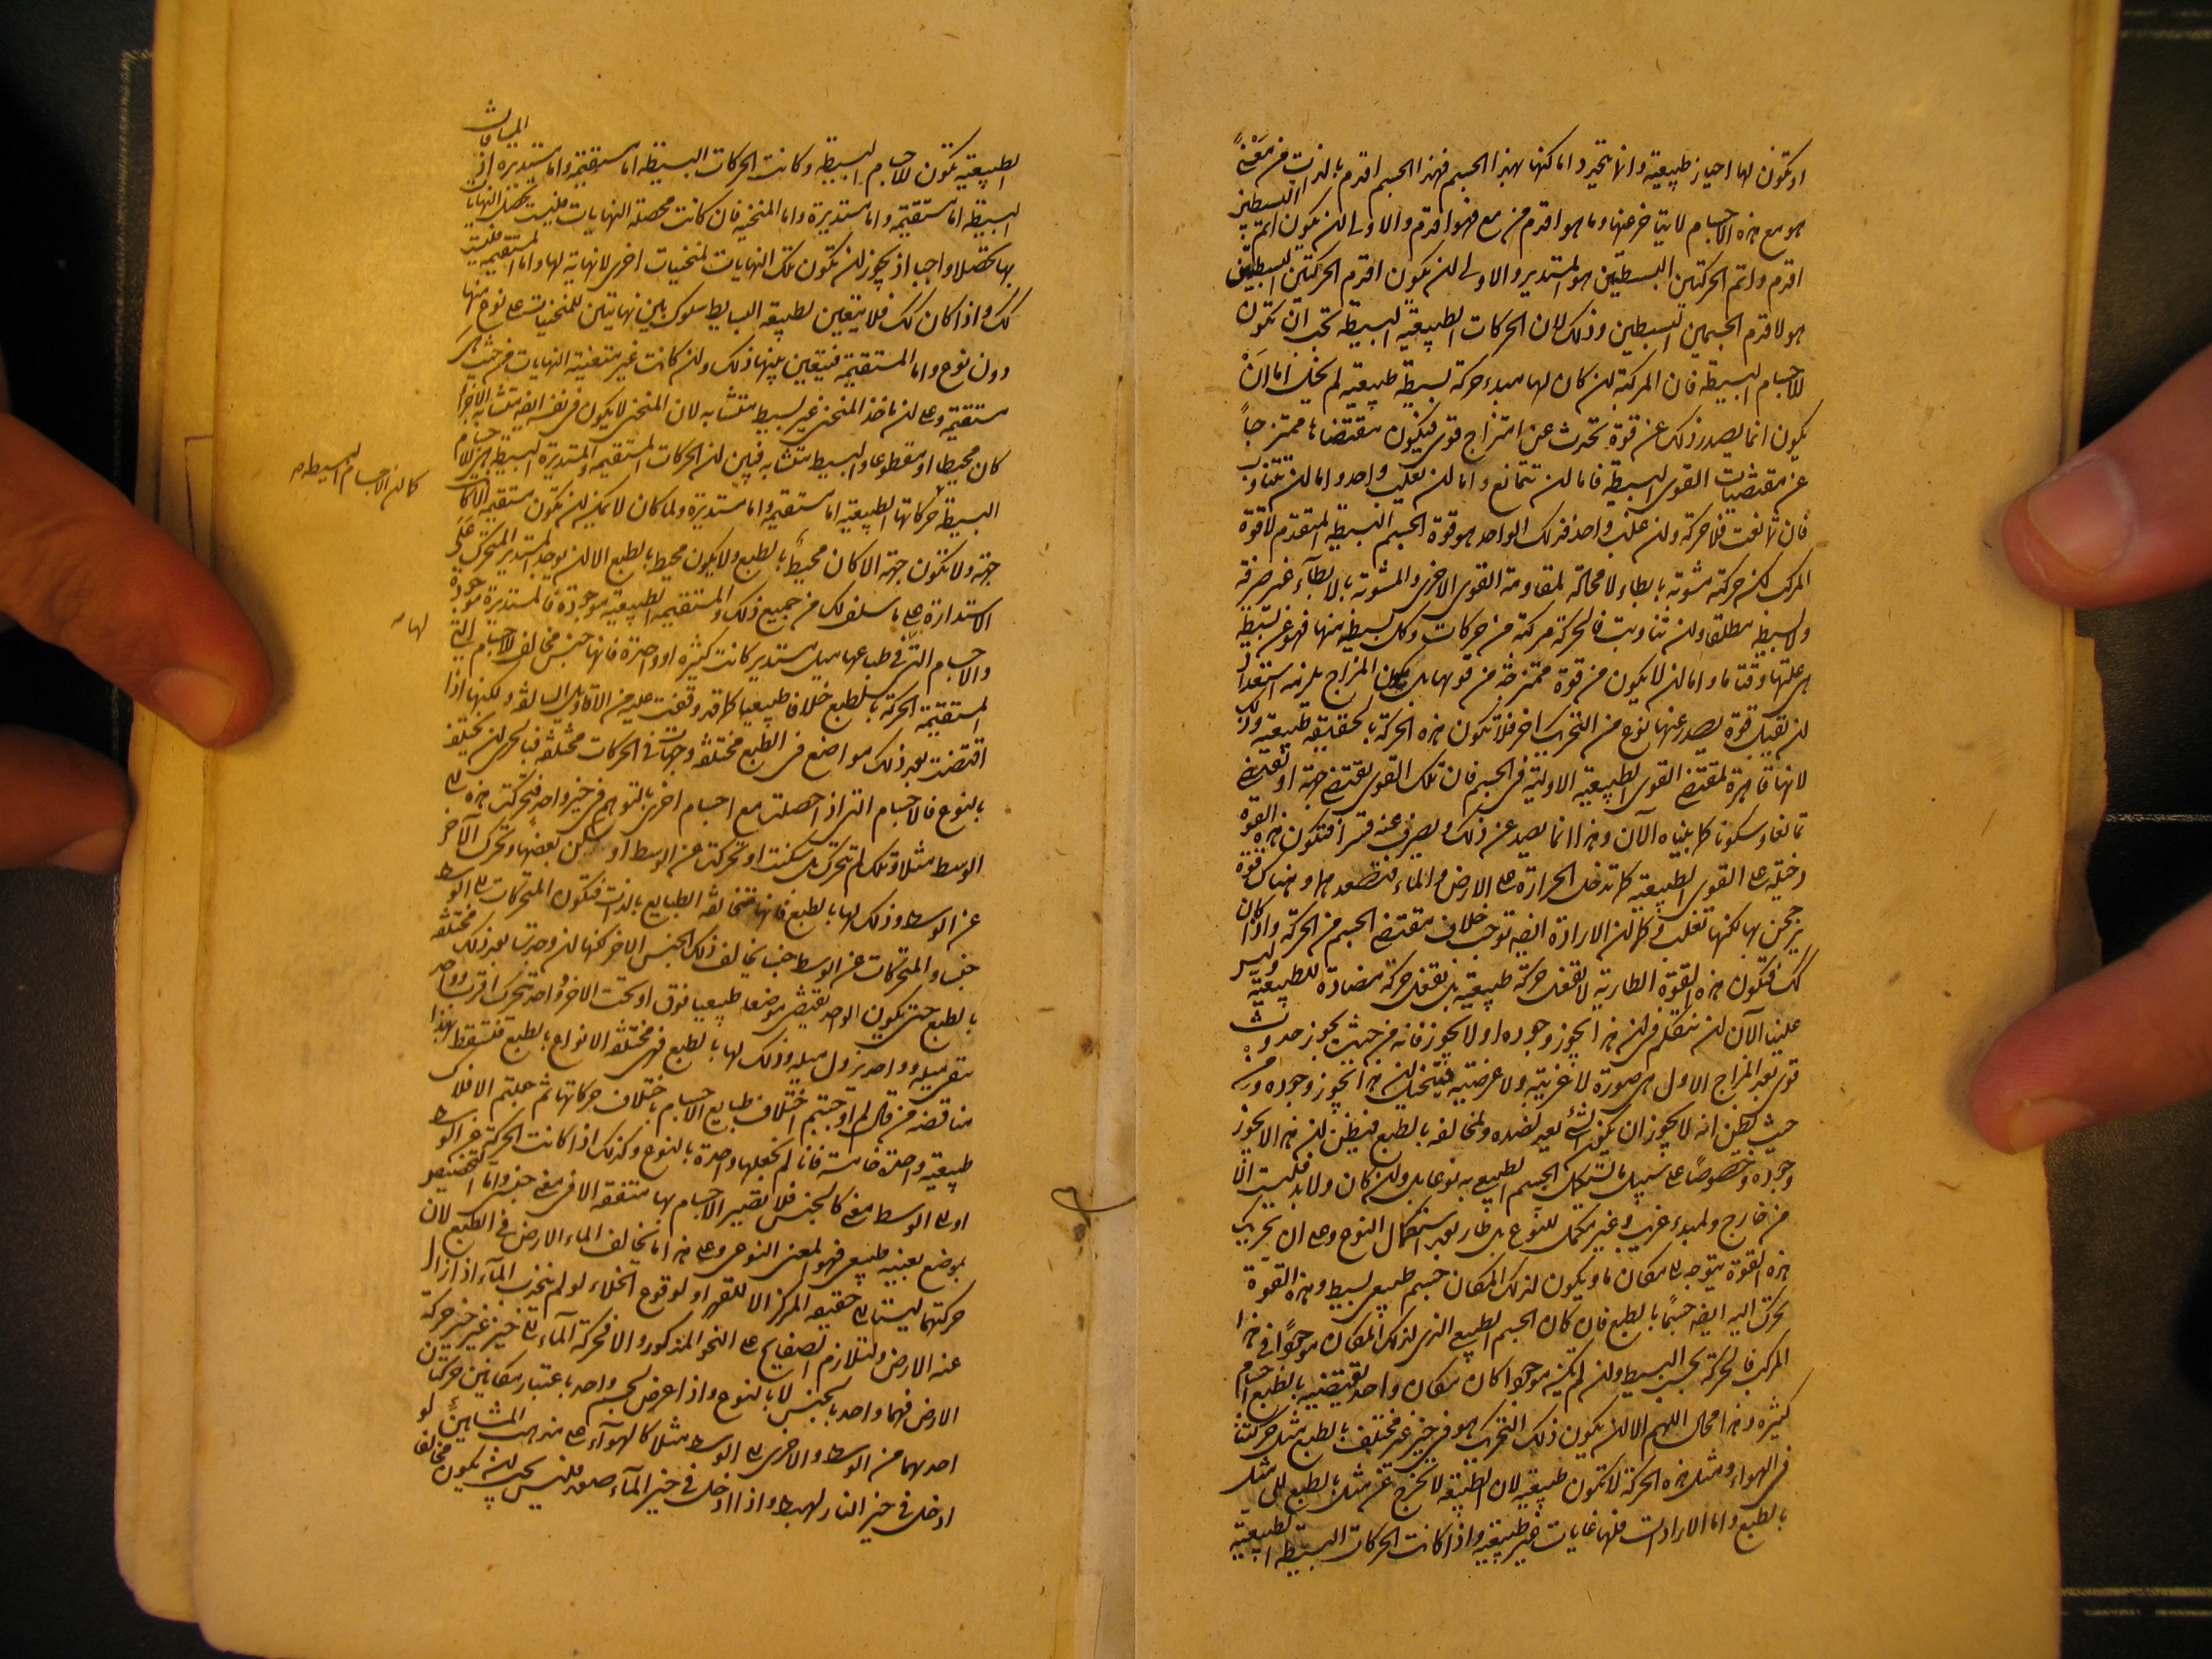 او تكون لها احياز طبيعية والا تتحيز واماكنها بهذا الجسم فهذا الجسم اقدم بالذات من
هو مع هذه الاجسام لا يتاخر عنها وما هو اقدم من مع فهو اقدم والاولى ان يكون اتم البسيطين
اقدم واتم الحركتين البسيطتين هو المستدير والاولى ان يكون اقدم الحركتين البسيطتين
هو لاقدم الجسمين البسيطين وذلك لان الحركات الطبيعية البسيطة يجب ان تكون
للاجسام البسيطة فان المركبة ان كان لها مبدء حركة بسيطة طبيعية لم يخل اما ان
يكون انما يصدر ذلك عن قوة تحدث عن امتزاج قوى فيكون مقتضاها ممتزجا
عن مقتضيات القوى البسيطة فاما ان تتمانع واما ان تغلب واحد واما ان تتناوب
فان تمانعت فلا حركة وان غلب واحد فذلك الواحد هو قوة الجسم البسيط المتقدم لا قوة
المركب لكن حركته مشوبة بابطاء لا محالة لمقاومة القوى الاخرى والمشوبة بالابطاء غير صرفة
ولا بسيطة مطلقا وان تناوبت فالحركة مركبة من حركات وكل بسيطة منها فهو عن بسيطة
هي علتها وقتا ما واما ان لا يكون من قوة ممتزجة من قواها بل يكون المزاج يلزمه استعداد
ان تقبل قوة يصدر عنها نوع من التحريك اخر فلا تكون هذه الحركة بالحقيقة طبيعية وذلك
لانها قاهرة لمقتضى القوى الطبيعية الاولية في الجسم فان تلك القوى تقتضي جهة او تقتضي
تمانعا وسكونا كما بيناه الآن وهذا انما يصد عن ذلك ويصرف عنه قسرا فتكون هذه القوة
دخيلة على القوى الطبيعية كما تدخل الحرارة على الارض والماء فتصعد بها وهناك قوة
يرجحن بها لكنها تغلب وكما ان الارادة ايضا توجب خلاف مقتضى الجسم من الحركة واذا كان
كك فتكون هذه القوة الطارية لا تفعل حركة طبيعية بل تفعل حركة مضادة للطبيعية وليس
علينا الآن ان نتكلم في ان هذا يجوز وجوده او لا يجوز فانه من حيث يجوز حدوث
قوى بعد المزاج الاول هي صورة لا غريبة ولا عرضية فيتخيل ان هذا يجوز وجوده ومن
حيث يظن انه لا يجوز ان يكون الشئ يعد لضده ولمخالفه بالطبع فيظن ان هذا لا يجوز
وجوده وخصوصا على سبيل ما يستكمل الجسم الطبيعي به نوعا بل وان كان ولا بد فليست الا
من خارج ولمبدء غريب وغير مكمل للنوع بل طار بعد استكمال النوع وعلى ان تحريك
هذه القوة يتوجه الى مكان ما ويكون لذلك المكان جسم طبيعي بسيط وهذه القوة
تحرك اليه ايضا جسما بالطبع فان كان الجسم الطبيعي الذي لذلك المكان موجودا في هذا
المركب فالحركة بحسب البسيط وان لم يكن موجودا كان مكان واحد تقتضيه بالطبع اجسام
كثيرة وهذا محال اللهم الا ان يكون ذلك التحريك هو في حيز غير مختلف بالطبع مثل حركتنا
في الهواء ومثل هذه الحركة لا تكون طبيعية لان الطبيعة لا تخرج عن مثل بالطبع الى مثل
بالطبع واما الارادات فلها غايات غير طبيعية واذا كانت الحركات البسيطة الطبيعية
الطبيعية تكون للاجسام البسيطة وكانت الحركات البسيطة اما مستقيمة واما مستديرة اذ المسافات
البسيطة اما مستقيمة واما مستديرة واما المنحنية فان كانت محصلة النهايات فليست تحصل النهايات
بها تحصلا واجبا اذ يجوز ان تكون تلك النهايات لمنحنيات اخرى لا نهاية لها واما المستقيمة فليست
كك واذا كان كك فلا يتعين لطبيعة البسايط سلوك بين نهايتين للمنحنيات على نوع منها
دون نوع واما المستقيمة فيتعين بينها ذلك وان كانت غير متعينة النهايات من حيث هي
مستقيمة وعلى ان ماخذ المنحني غير بسيط متشابه لان المنحني لا يكون في نفسه ايضا متشابه الاجزاء
كان محيطا او مقطوعا والبسيط متشابه فبين ان الحركات المستقيمة والمستديرة البسيطة هي للاجسام
البسيطة حركاتها الطبيعية اما مستقيمة واما مستديرة ولما كان لا يمكن ان تكون مستقيمة الا كانت
جهة ولا تكون جهة الا كان محيط بالطبع ولا يكون محيط بالطبع الا ان يوجد المستدير المتحرك على
الاستدارة على ما سلف لك من جميع ذلك والمستقيمة الطبيعية موجودة فالمستديرة موجودة
والاجسام التي في طباعها ميل مستدير كانت كثيرة او واحدة فانها جنس مخالف للاجسام التي
المستقيمة الحركة بالطبع خلافا طبيعيا كما قد وقفت عليه من الاقاويل السالفة ولكنها اذا
اقتضت بعد ذلك مواضع في الطبع مختلفة وجهات في الحركات مختلفة فبالحرى ان يختلف
بالنوع فالاجسام التي اذا حصلت مع اجسام اخرى بالتوهم في حيز واحد فتحركت هذه الى
الوسط مثلا وتلك لم تتحرك بل سكنت او تحركت عن الوسط او سكن بعضها وتحرك الآخر
عن الوسط وذلك لها بالطبع فانها متخالفة الطبايع بالذات فتكون المتحركات الى الوسط
جنسا والمتحركات عن الوسط جنسا يخالف ذلك الجنس الاخر لكنها ان وجدت بعد ذلك مختلفة
بالطبع حتى يكون الواحد يقتضي موضعا طبيعيا فوق او تحت الاخر وواحد يتحرك اقرب وواحد
يبقى ميله وواحد يزول ميله وذلك لها بالطبع فهي مختلفة الانواع بالطبع فتسقط بهذا
مناقضة من قال لم اوجبتم اختلاف طبايع الاجسام باختلاف حركاتها ثم جعلتم الافلاك
طبيعة واحدة خامسة فانا لم نجعلها واحدة بالنوع وكذلك اذا كانت الحركة من الوسط
او الى الوسط معنى كالجنس فلا تصير الاجسام بها متفقة الا في معنى جنسي واما التخصيص
بموضع بعينه طبيعي فهو المعنى النوعي وعلى هذا ما يخالف الماء الارض في الطبع لان
حركتهما ليستا الى حقيقة المركز الا للقهر او لوقوع الخلاء لو لم ينجذب الماء اذا زال
عنه الارض ولتلازم الصفايح على النحو المذكور والا فحركة الماء الى حيز غير حيز حركة
الارض فهما واحد بالجنس لا بالنوع واذا عرض لجسم واحد باعتبار مكانين حركتان
احديهما من الوسط والاخرى الى الوسط مثلا كالهواء على مذهب المشائين لو
ادخل في حيز النار لهبط واذا ادخل في حيز الماء صعد فليس يجب ان يكون مخالفا
كما ان الاجسام البسيطة
لها